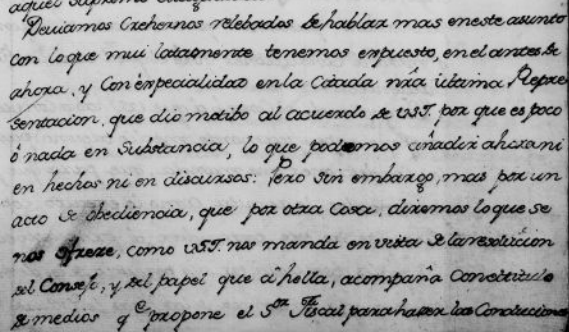 aquel Supremo
Deviamos Crehernos relebados de hablar mas eneste asunto
con loque mui latamente tenemos expuesto, enel antes de
ahora, y Con expecialidad enla Citada nrã ultima Repre
sentacion, que dio motibo al acuerdo de VST. por que es poco
ó nada en Substancia, lo que podemos añadir ahora ni
en hechos ni en discursos: Pero sin embargo, mas por un
acto de obediencia, que por otra Cosa, diremos loque se
nos ofreze, como VST. nos manda en vista de laresolucion
del Consejo, y del papel que á hella, acompaña Conel titulo
de medios qᵉ propone el Sᵒʳ Fiscal parahazer las Conduciones